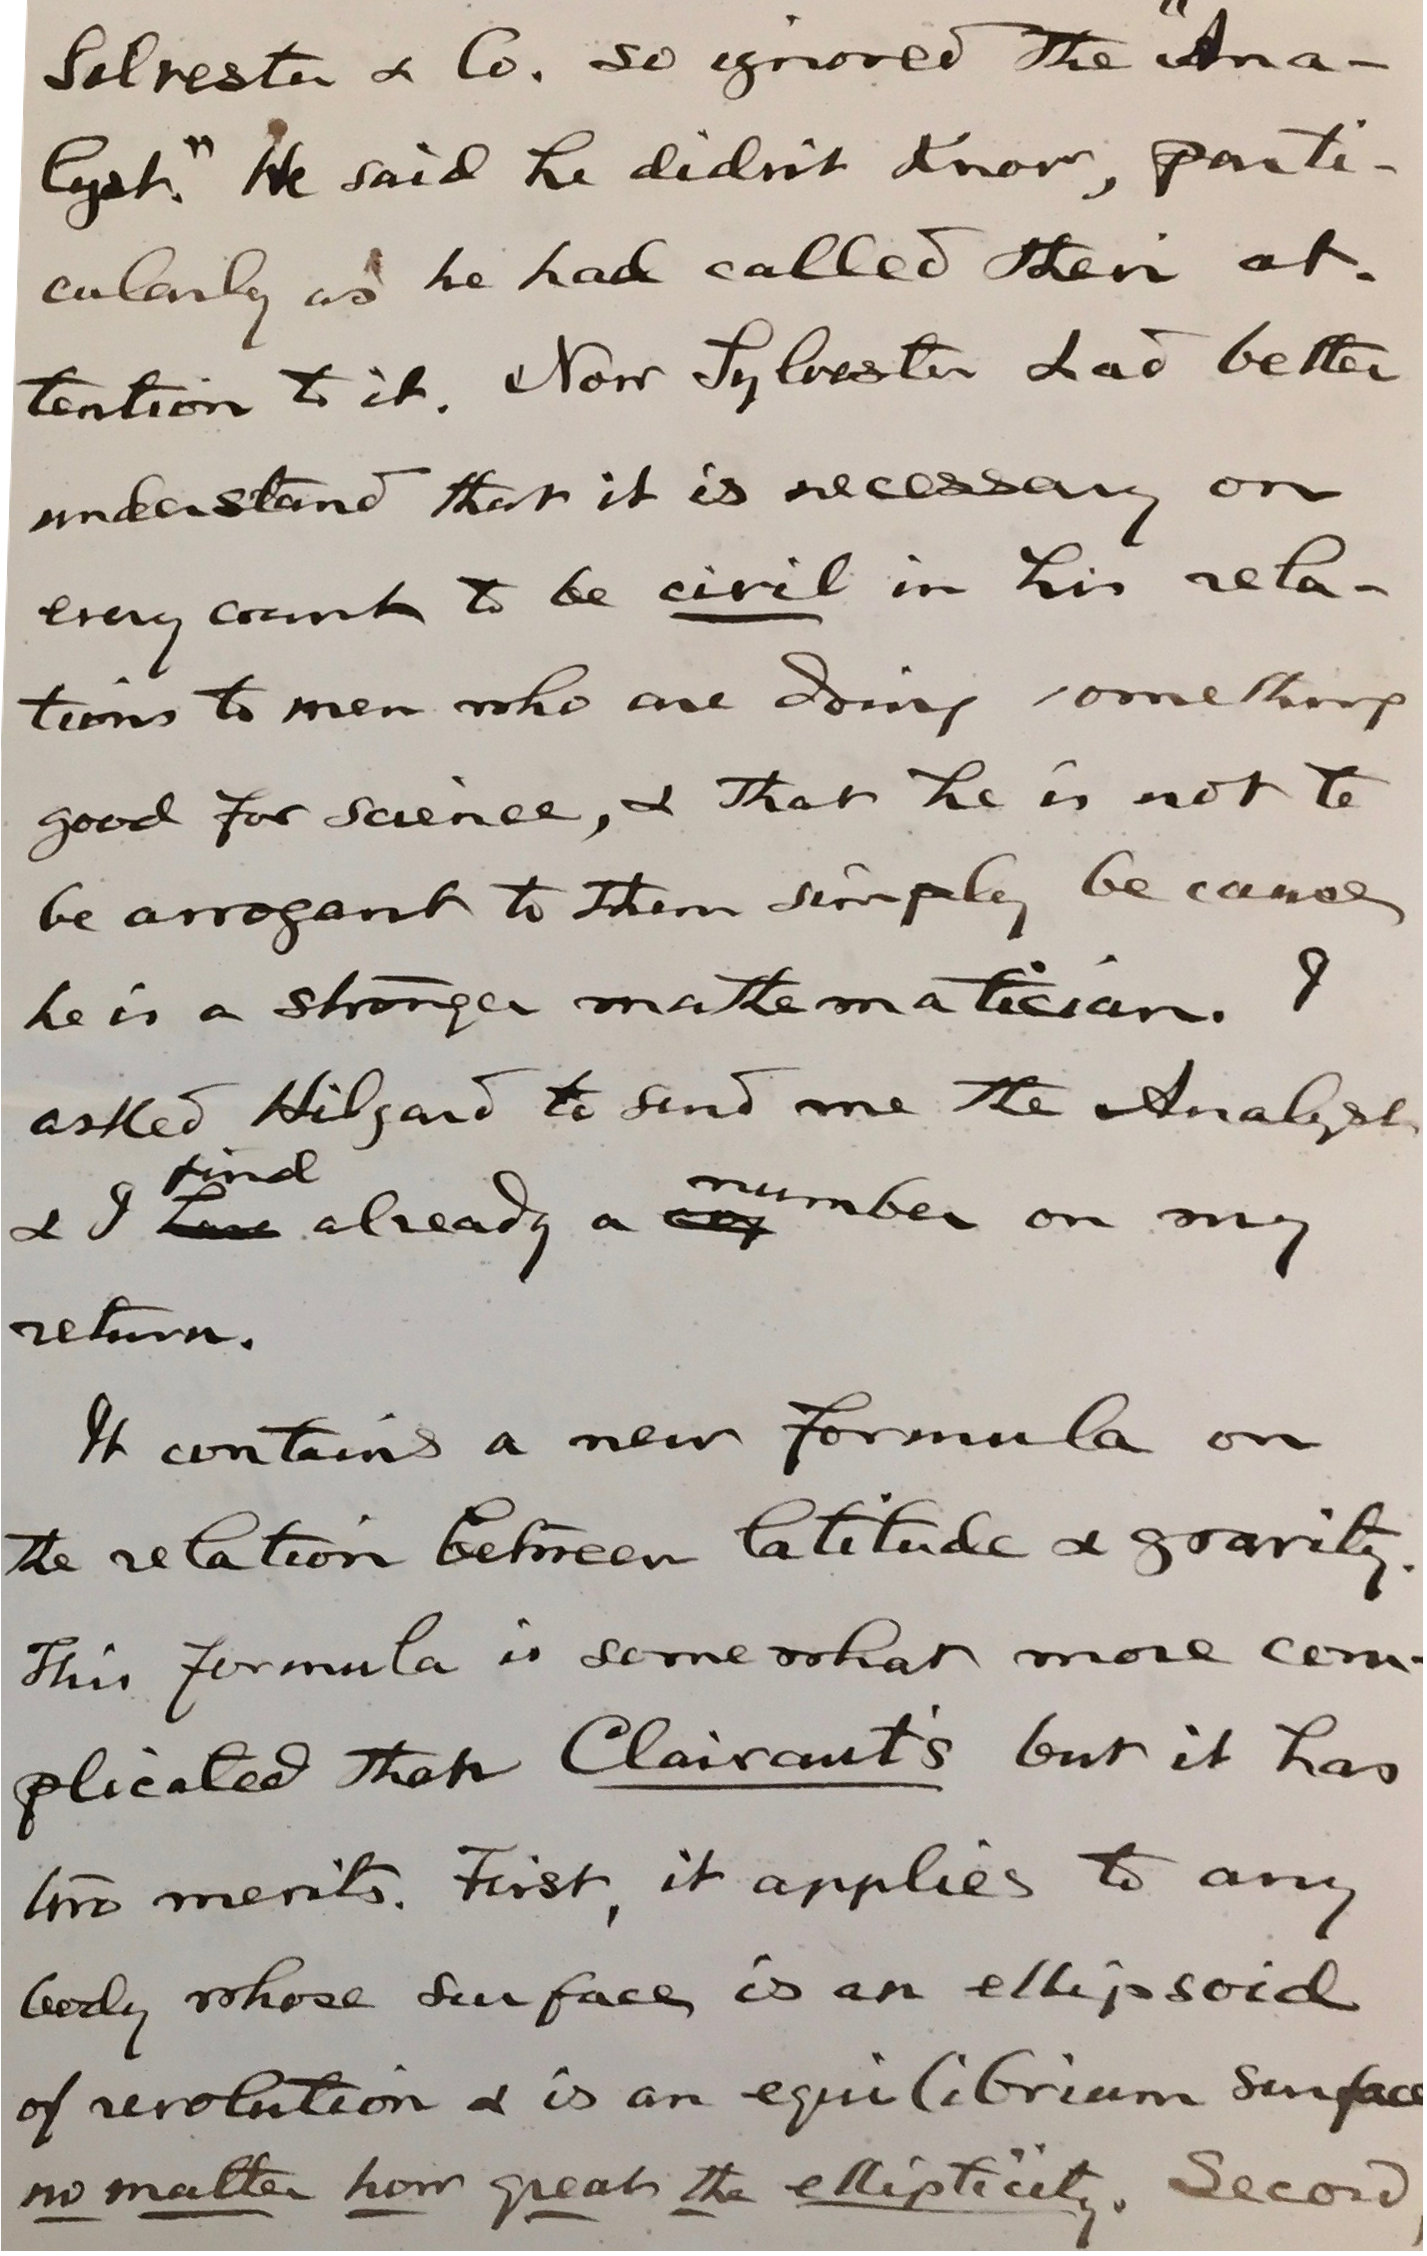 Silvester & Co. so ignored the "Ana-
lyst." He said he didn't know, parti-
cularly as he had called their at-
tention to it. Now Sylvester had better
understand that it is necessary on
every count to be civil in his rela-
tions to men who are doing something
good for science, & that he is not to
be arrogant to them simply because
he is a stronger mathematician. I
asked Hilgard to send me the Analyst
find number
& I have already a copy on my
return.
It contains a new formula on
the relation between latitude & gravity.
This formula is somewhat more com-
plicated than Clairaut's but it has
two merits. First, it applies to any
body whose surface is an ellipsoid
of revolution & is an equilibrium surface
no matter how great the ellipticity. Second,